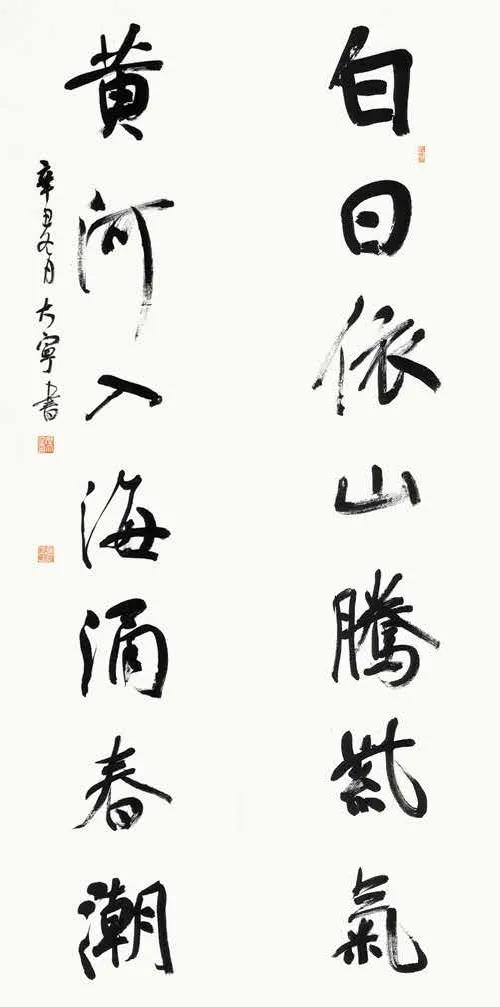 白日依山騰紫氣
黄河入海涌春潮
辛丑冬月大寧書